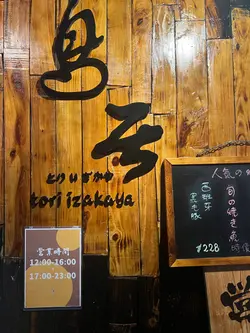 鳥
とりいざかや
tori izakaya
営業時間
12:00-16:00
17:00-23:00
人気の
旬の焼き魚
時價
西班牙
黒毛豚
¥228